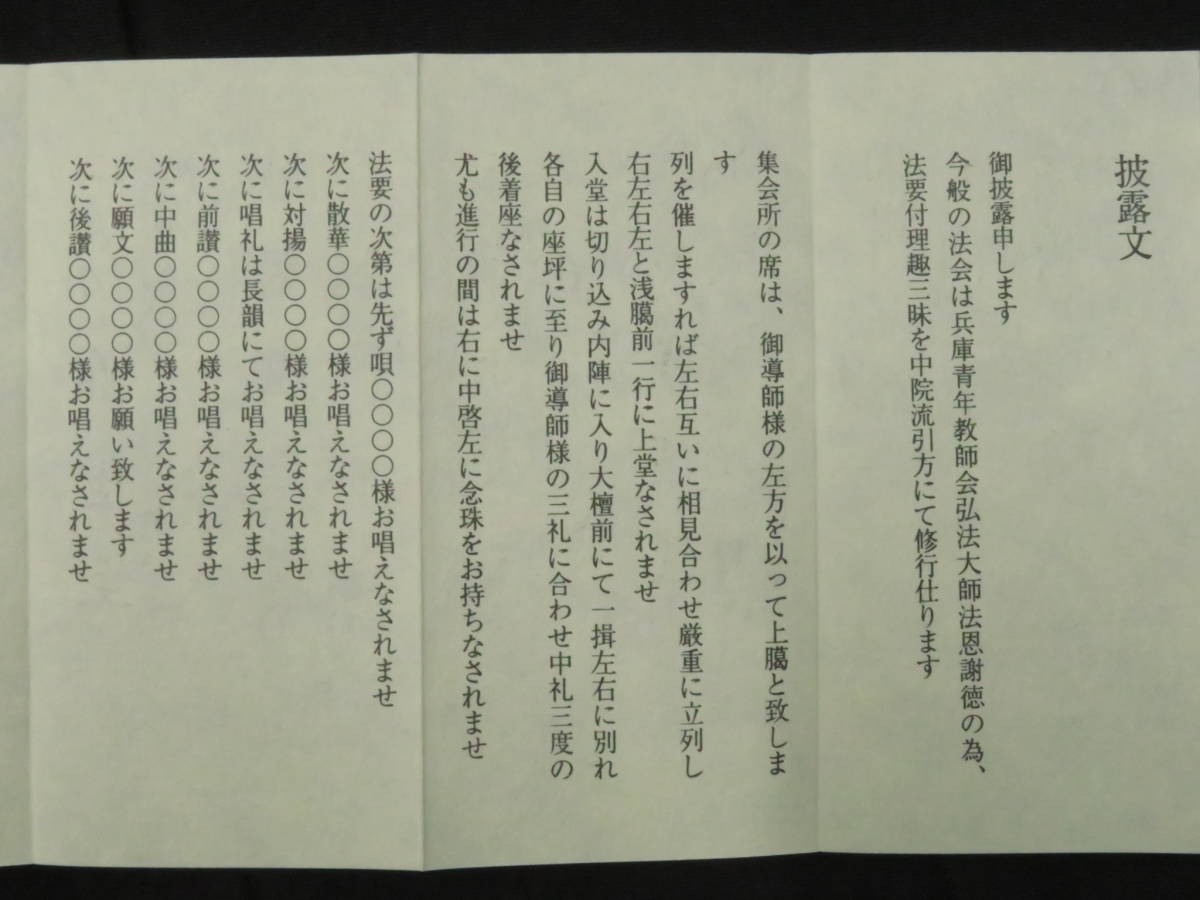 披露文
御披露申します
今般の法会は兵庫青年教師会弘法大師法恩謝徳の為、
法要付理趣三昧を中院流引方にて修行仕ります
集会所の席は、御導師様の左方を以って上臈と致しま
す
列を催しますれば左右互いに相見合わせ厳重に立列し
右左右左と浅臈前一行に上堂なされませ
入堂は切り込み内陣に入り大檀前にて一揖左右に別れ
各自の座坪に至り御導師様の三礼に合わせ中礼三度の
後着座なされませ
尤も進行の間は右に中啓左に念珠をお持ちなされませ
法要の次第は先ず唄〇〇〇〇様お唱えなされませ
次に散華〇〇〇〇様お唱えなされませ
次に対揚〇〇〇〇様お唱えなされませ
次に唱礼は長韻にてお唱えなされませ
次に前讃〇〇〇〇様お唱えなされませ
次に中曲〇〇〇〇様お唱えなされませ
次に願文〇〇〇〇様お願い致します
次に後讃〇〇〇〇様お唱えなされませ